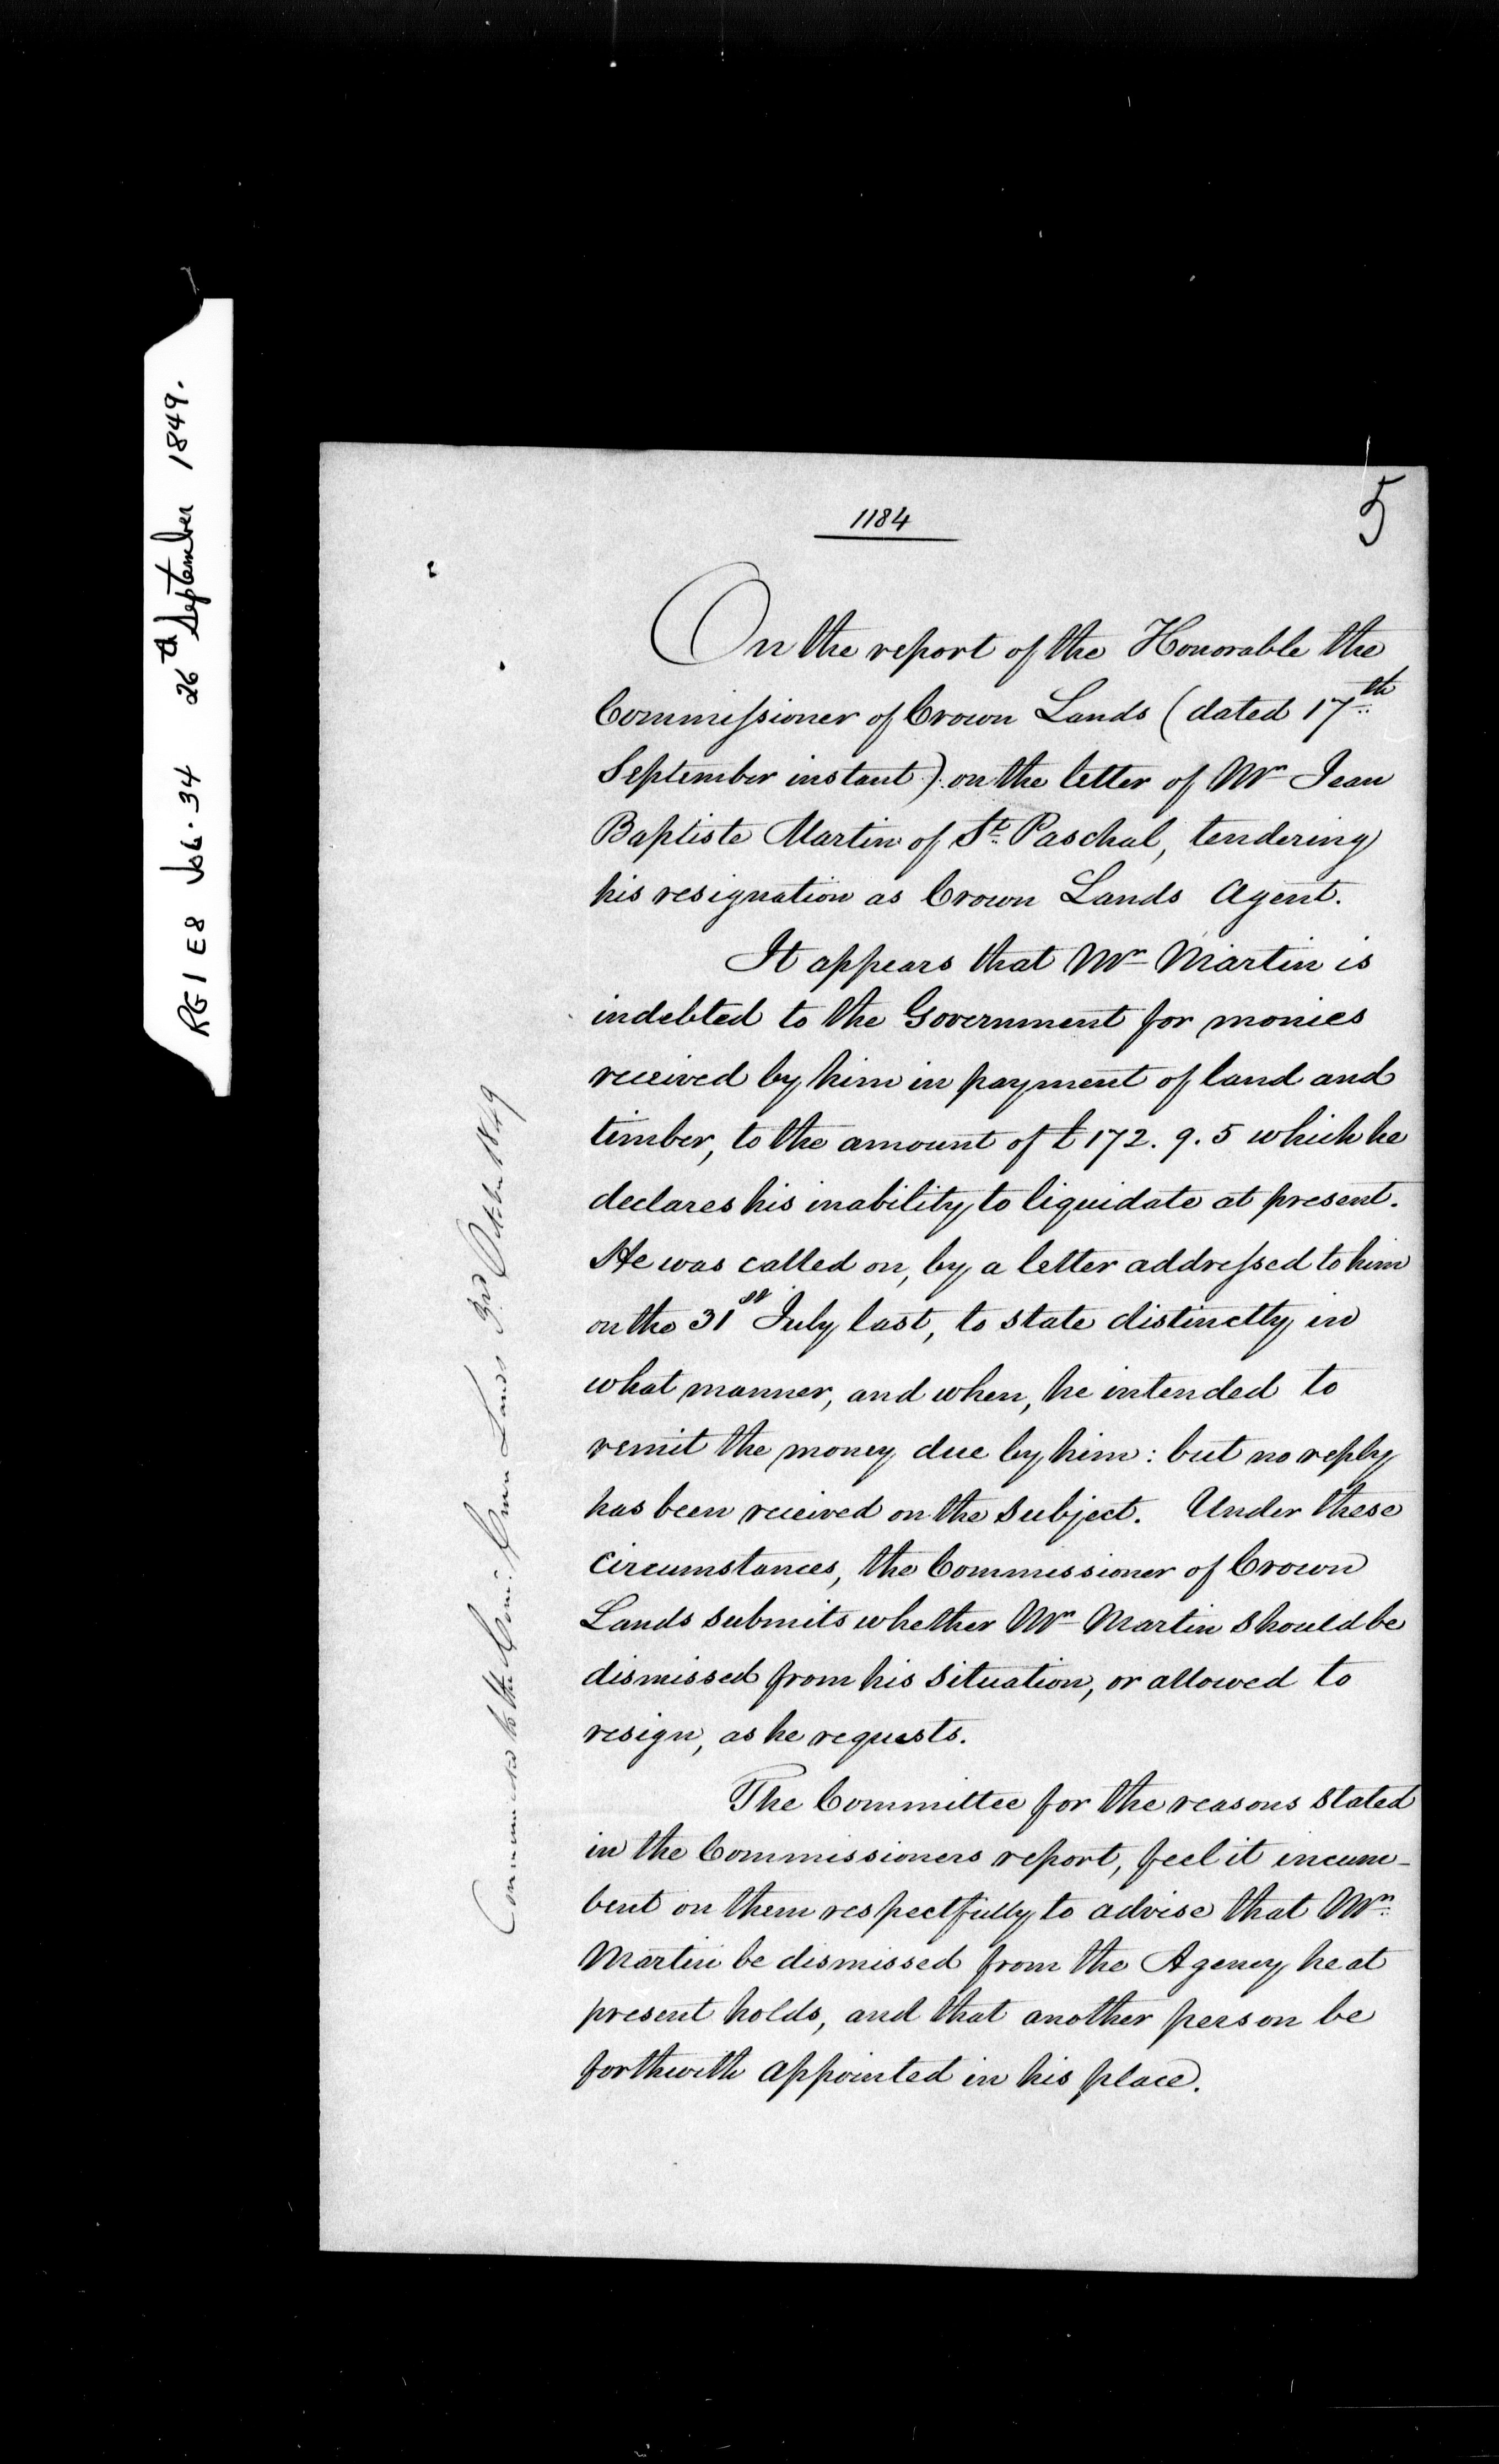 RG 1 E8 Vol. 34 26th September 1849.
1184
5
On the report of the Honorable the
Commissioner of Crown Lands (dated 17th
September instant) on the letter of Mr Jean
Baptiste Martin of St Paschal, tendering
his resignation as Crown Lands Agent.
It appears that Mr Martin is
indebted to the Government for monies
received by him in payment of land and
timber, to the amount of £172. 9. 5 which he
declares his inability to liquidate at present.
He was called on, by a letter addressed to him
on the 31st July last, to state distinctly in
what manner, and when, he intended to
remit the money due by him: but no reply
has been received on the subject. Under these
circumstances, the Commissioner of Crown
Lands submits whether Mr Martin should be
dismissed from his situation, or allowed to
resign, as he requests.
The Committee for the reasons stated
in the Commissioners report, feel it incum-
bent on them respectfully to advise that Mr
Martin be dismissed from the Agency he at
present holds, and that another person be
forthwith appointed in his place.
Communicated to the Comr. Crown Lands 3rd October 1849